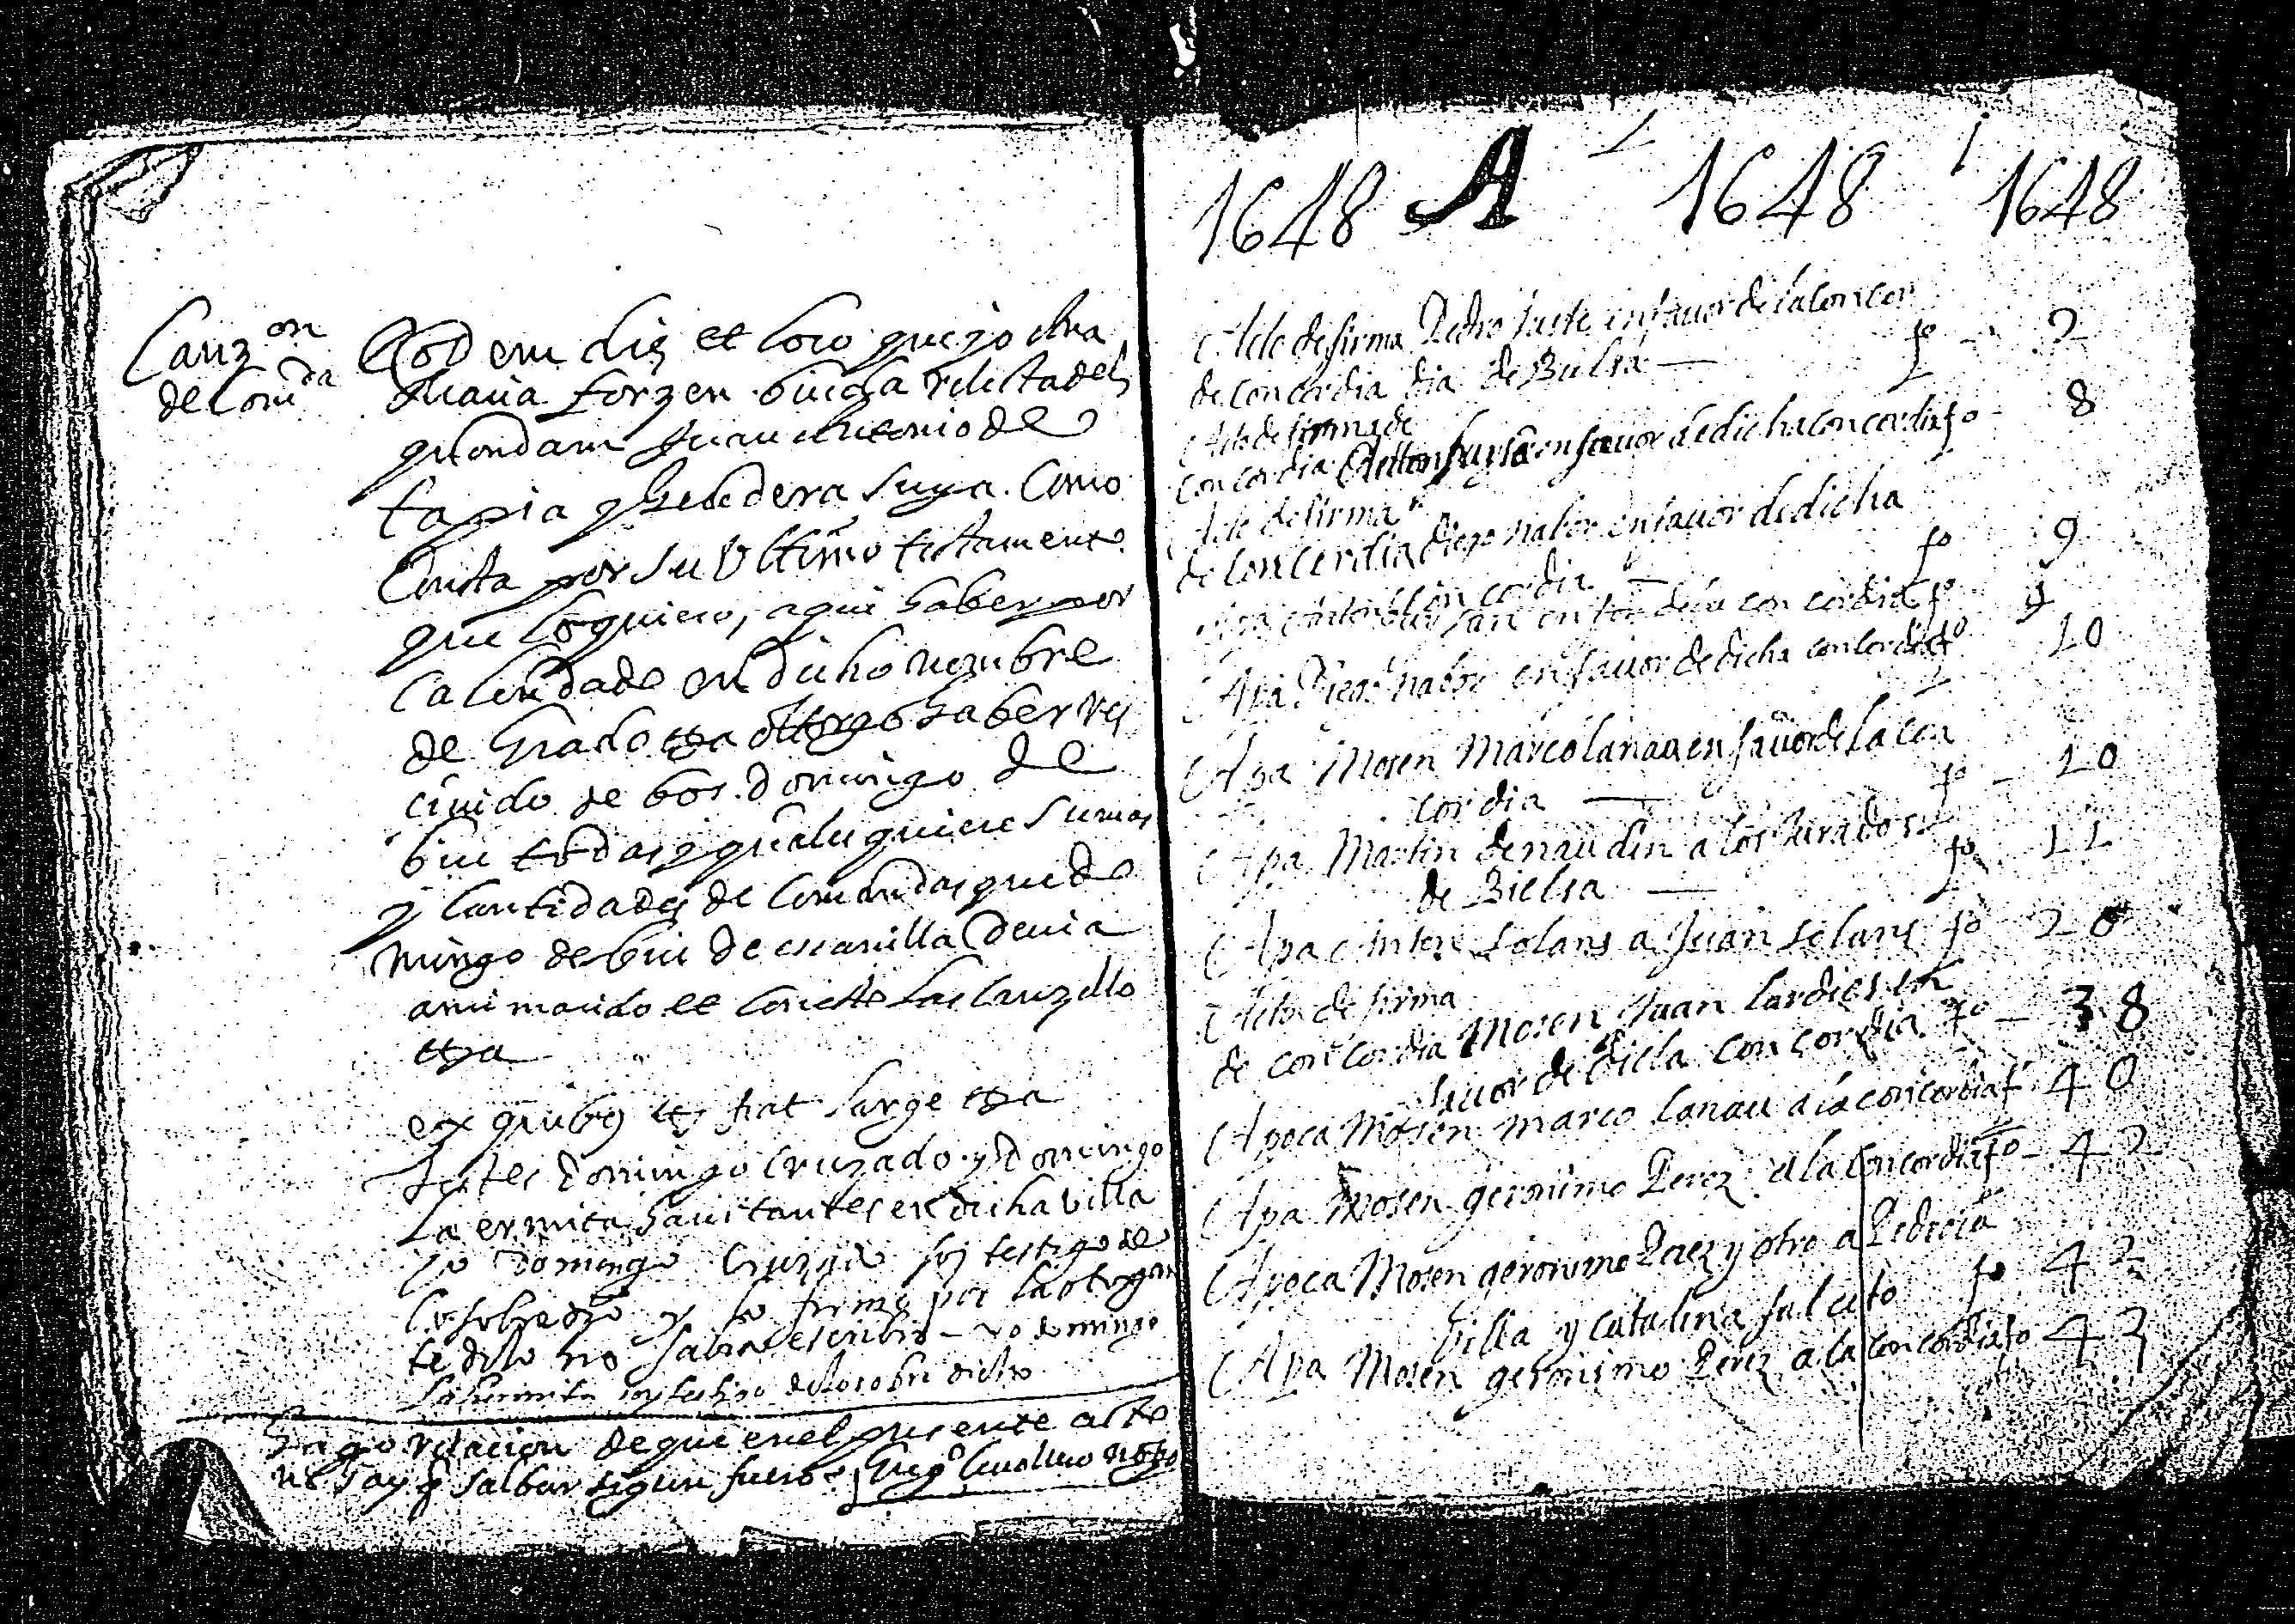 Canz.on
de Com.da
Eodem die et loco que yo Ana
Maria Forzen biuda relicta del
quondam Juan Antonio de
tapia y heredera suya. Como
Consta por su Ultimo testamento
que lo quiero, aqui haber por
Calendado en dicho nombre
de Grado etta ottorgo haber re
ciuido de bos. domingo de
biu todas y qualesquiere sumas
y Cantidades de Comandas que do
mingo de biu de escanilla deuia
ami marido et Con esto las Canzello
etta
ex quibus etz fiat large etta
testes domingo Cruzado y domingo
La ermita hauitantes en dicha villa
yo domingo Cruzado soy testigo de
lo sobredho y lo firmo por la otorgan
te dixo no sabia escribir - yo domingo
la hermita soy testigo delo sobre dicho
hago relacion de que en el presente acto
no ay q salbar sigun fuero
1648 A 1648 1648
Acto de firma Pedro fuste en fauor de la concor
de concordia dia de Bielsa — fo - 2
Acto de firma de
concordia en fauor de dicha concordia fo - 8
Acto de firma
de concordia Diego nabor en fauor de dicha
concordia — fo 9
Apa Anton en for de la concordia fo 9
Apa Diego nabor en fauor de dicha concordia fo 10
Apa Mosen Marco lanau en fauor de la con
cordia — fo - 10
Apa Martin denaudin a los Jurados
de Bielsa — fo 11
Apa Anton Solans a Juan Solans fo 20
Acto de firma
de concordia Mosen Juan Lardies en
fauor de dicha concordia fo - 38
Apoca Mosen marco Lanau a la concordia f 40
Apa Mosen geronimo Perez a la concordia fo - 42
Apoca Mosen geronimo Perez y otro a Pedro
villa y catalina falceto fo 42
Apa Mosen geronimo Perez a la concordia fo 43